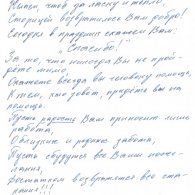 чтоб за ласку и тепло,
Сторицей возвратилось Вам добро!
Сегодня в праздник скажем Вам:
"Спасибо!"
За то, что никогда Вы не пройдёте мимо,
Окажете всегда Вы человеку помощь,
К тем, кто зовёт, придёте Вы на
помощь.
Пусть радость Вам приносит лишь
работа,
О близких и родных забота,
Пусть сбудутся все Ваши поже-
лания,
возвратятся все ста-
рания!!!